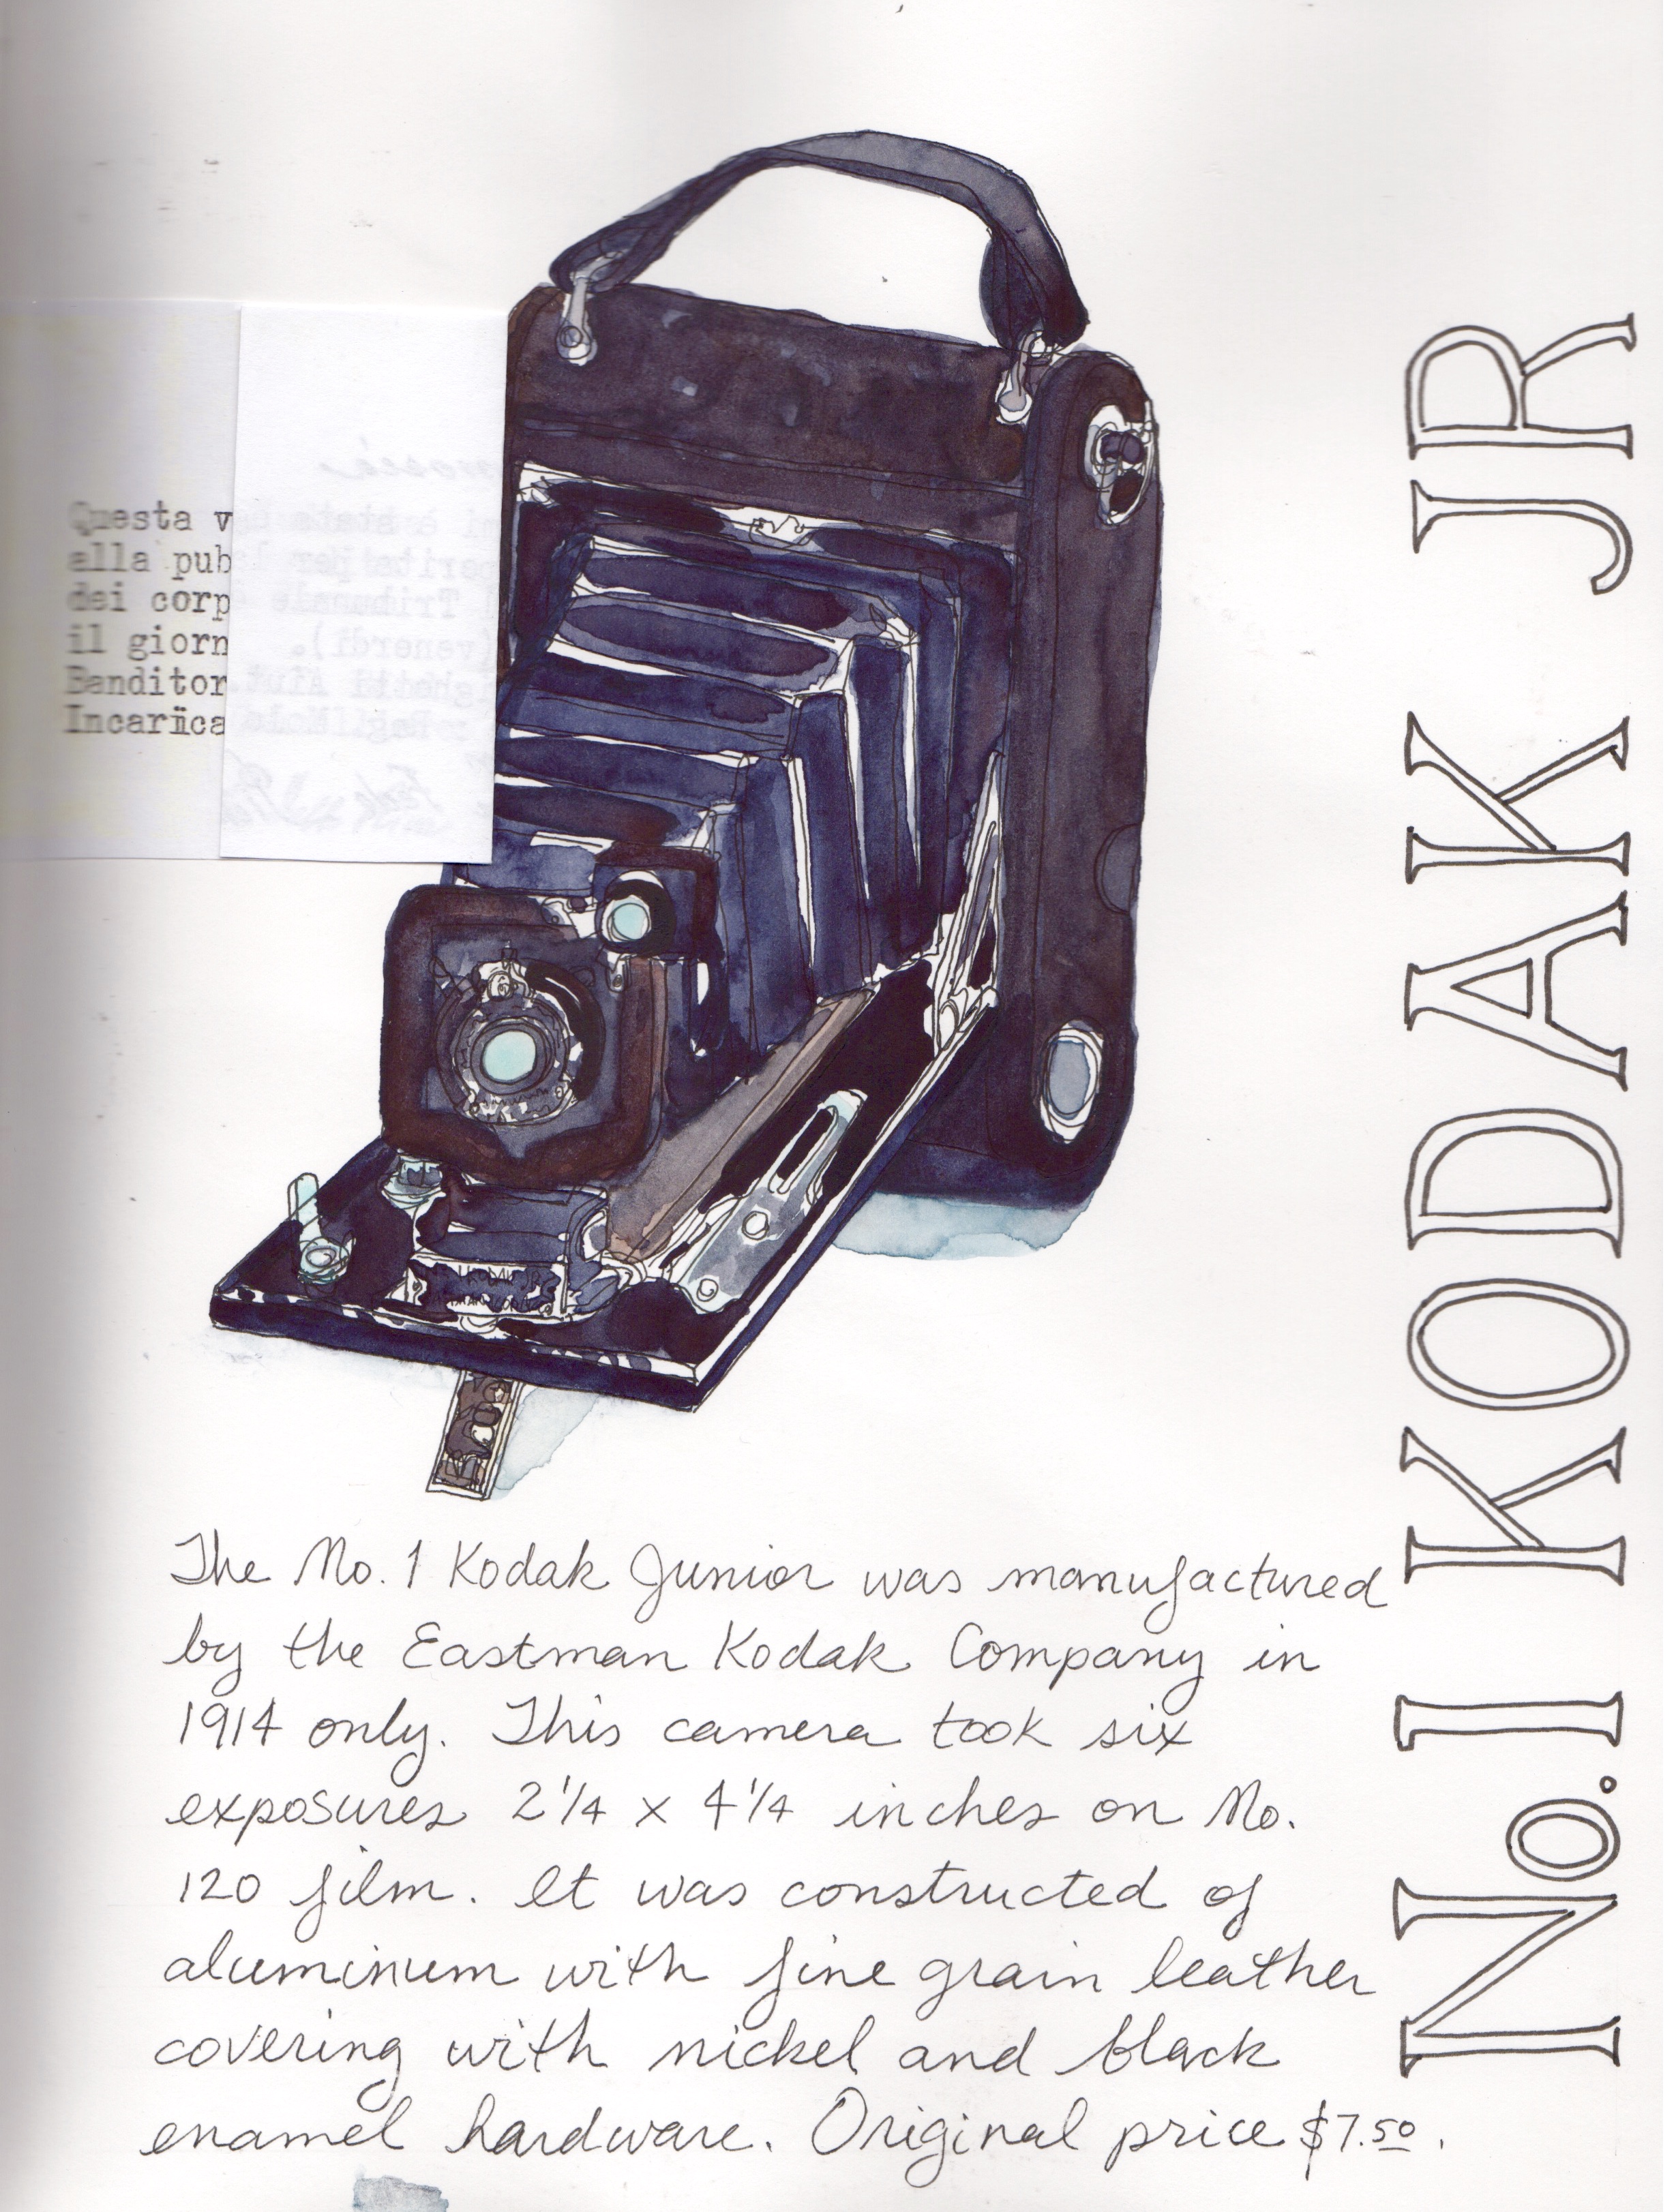 Questa v
alla pub
dei corp
il giorn
Banditor
Incariica
No. 1 KODAK JR
The No. 1 Kodak Junior was manufactured
by the Eastman Kodak Company in
1914 only. This camera took six
exposures 2 1/4 x 4 1/4 inches on No.
120 film. It was constructed of
aluminum with fine grain leather
covering with nickel and black
enamel hardware. Original price $7.50.